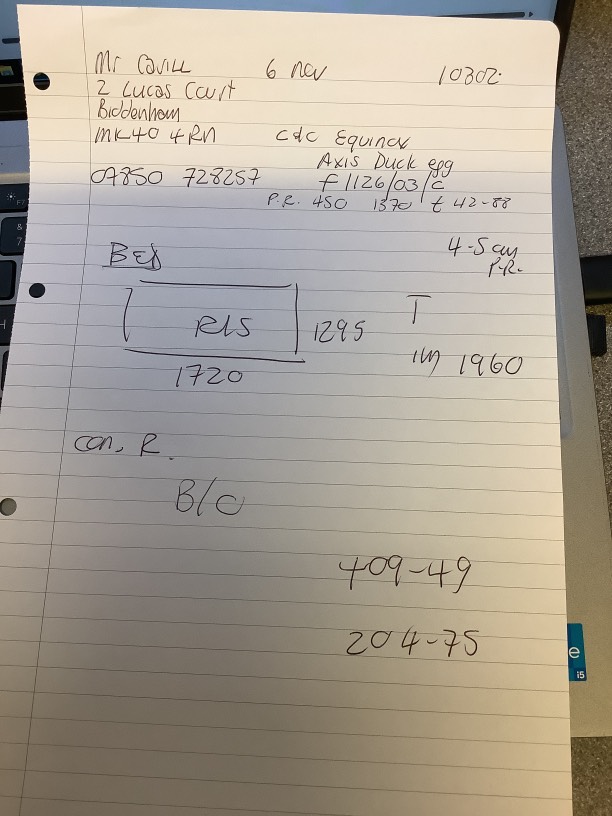 Mr Cavill 6 Nov 10302.
2 Lucas Court
Biddenham
MK40 4RN c&c Equinox
Axis Duck egg
07850 728257 f1126/03/c
P.R. 450 1370 £ 42-88
4-5 cm
P.R.
Bed
R/S 1295 T
1m 1960
1720
con. R.
B/C
409-49
204-75
e
i5